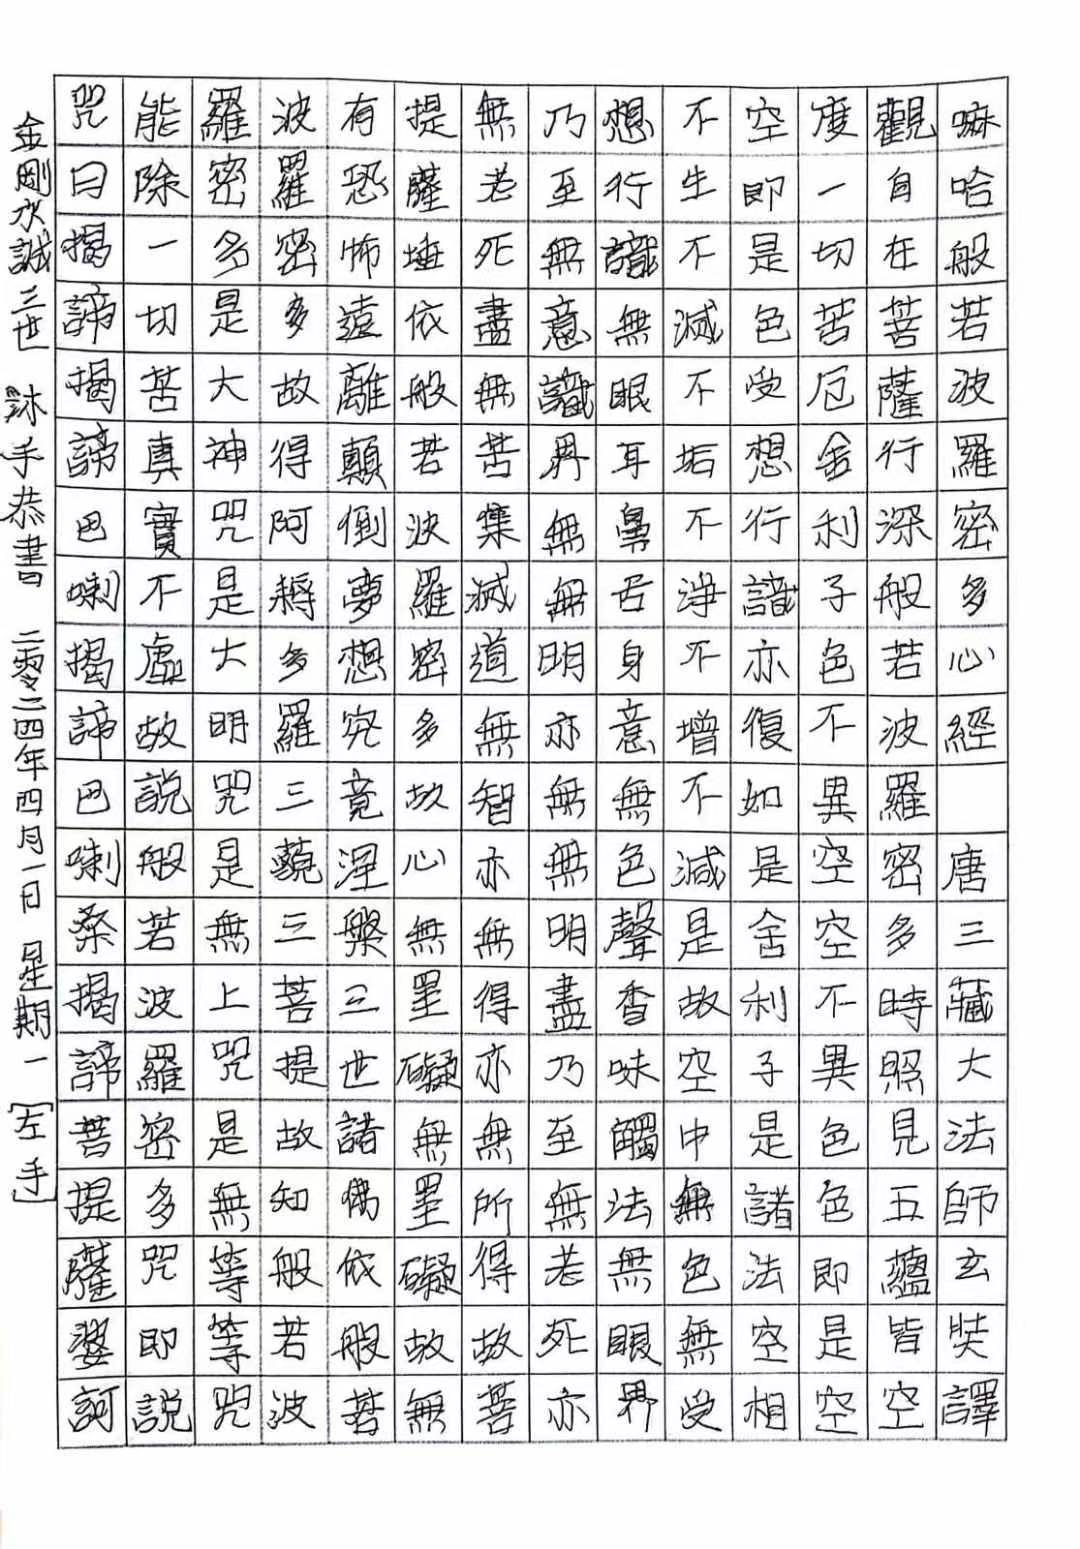 嘛哈般若波羅密多心經 唐三藏大法師玄奘譯
觀自在菩薩行深般若波羅密多時照見五蘊皆空
度一切苦厄舍利子色不異空空不異色色即是空
空即是色受想行識亦復如是舍利子是諸法空相
不生不滅不垢不淨不增不減是故空中無色無受
想行識無眼耳鼻舌身意無色聲香味觸法無眼界
乃至無意識界無無明亦無無明盡乃至無老死亦
無老死盡無苦集滅道無智亦無得亦無所得故菩
提薩埵依般若波羅密多故心無罣礙無罣礙故無
有恐怖遠離顛倒夢想究竟涅槃三世諸佛依般若
波羅密多故得阿耨多羅三藐三菩提故知般若波
羅密多是大神咒是大明咒是無上咒是無等等咒
能除一切苦真實不虛故說般若波羅密多咒即說
咒曰揭諦揭諦巴喇揭諦巴喇桑揭諦菩提薩婆訶
金剛水誠三世 沐手恭書 二零二四年四月一日 星期一 [左手]